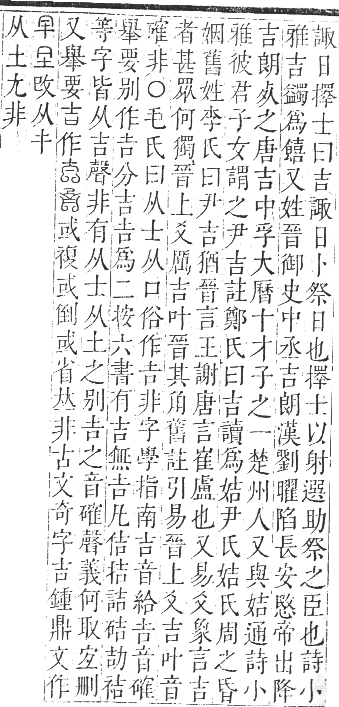 諏日擇士曰吉諏日卜祭日也擇士以射選助祭之臣也詩小
雅吉蠲爲饎又姓晉御史中丞吉朗漢劉曜陷長安愍帝出降
吉朗死之唐吉中孚大曆十才子之一楚州人又與姞通詩小
雅彼君子女謂之尹吉註鄭氏曰吉讀爲姞尹氏姞氏周之昏
姻舊姓李氏曰尹吉猶晉言王謝唐言崔盧也又易爻象言吉
者甚眾何獨晉上爻厲吉叶晉其角舊註引易晉上爻吉叶音
確非〇毛氏曰从士从口俗作𠮷非字學指南吉音給𠮷音確
舉要別作𠮷分吉𠮷爲二按六書有吉無𠮷凡佶拮詰硈劼祮
等字皆从吉聲非有从士从土之別𠮷之音確聲義何取宜刪
又舉要吉作或複或倒或省𠀤非古文奇字吉鍾鼎文作
攺从
从土尤非